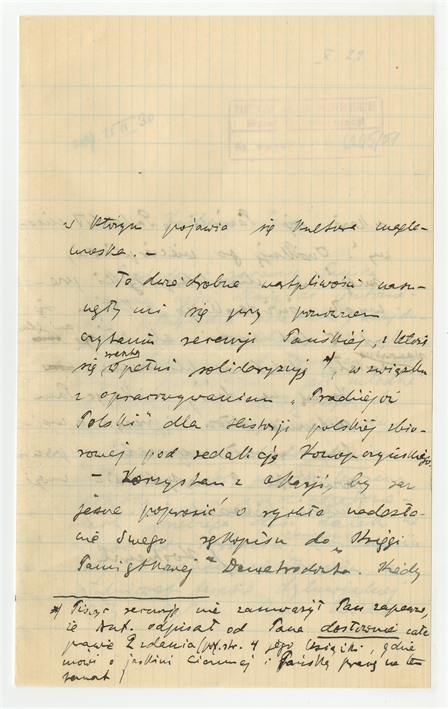 w którym pojawia się kultura magle-
moska. –
To dwie drobne wątpliwości nasu-
nęły mi się przy ponownem
czytaniu recenzji Pańskiej, z którą
się zresztą w pełni solidaryzuję *), w związku
z opracowywaniem „Pradziejów
Polski" dla Historji polskiej zbio-
rowej pod redakcją Konopczyńskiego.
– Korzystam z okazji, by raz
jeszcze poprosić o rychłe nadesła-
nie Swego rękopisu do „Księgi
Pamiątkowej" Demetrykiewicza. Kiedy
*) Pisząc recenzję nie zauważył Pan zapewne,
że Aut. odpisał od Pana dosłownie całe
prawie 2 zdania (p. str. 4 jego książki, gdzie
mówi o jaskini Ciemnej i Pańską pracę na ten
temat)